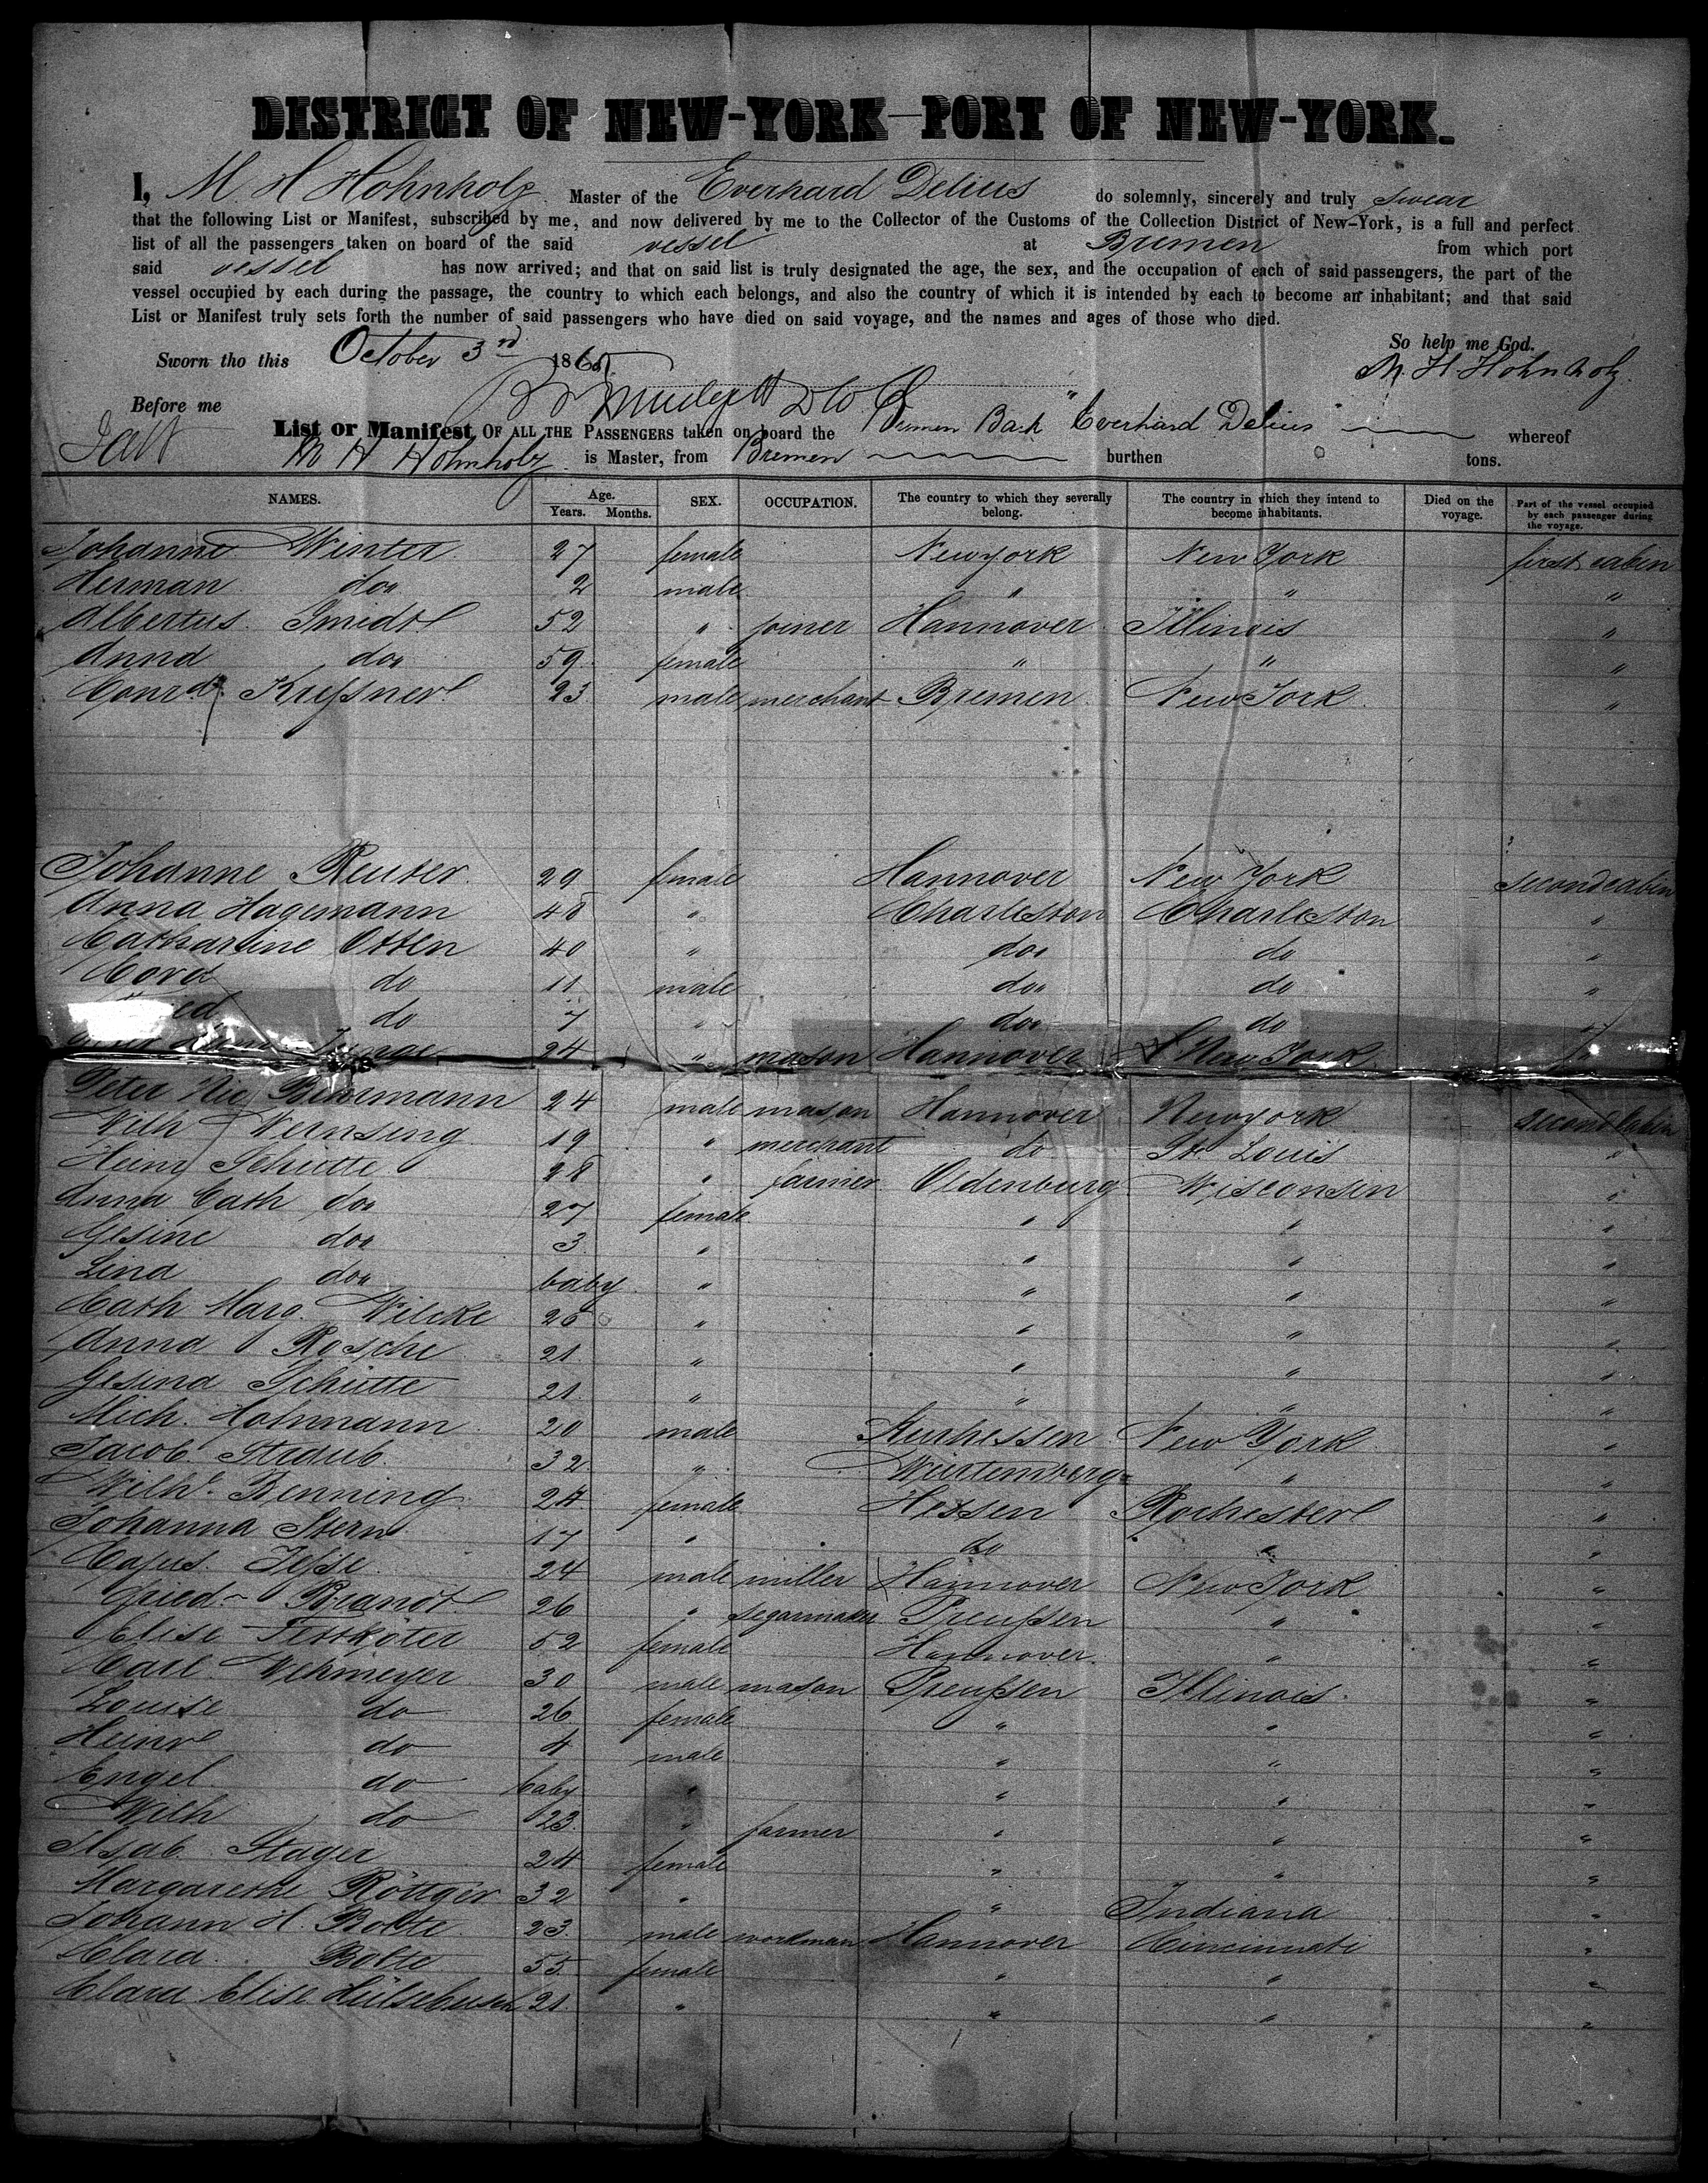 DISTRICT OF NEW-YORK—PORT OF NEW-YORK.
I, M. H Hohnholz Master of the Everhard Delius do solemnly, sincerely and truly swear
that the following List or Manifest, subscribed by me, and now delivered by me to the Collector of the Customs of the Collection District of New-York, is a full and perfect
list of all the passengers taken on board of the said vessel at Bremen from which port
said vessel has now arrived; and that on said list is truly designated the age, the sex, and the occupation of each of said passengers, the part of the
vessel occupied by each during the passage, the country to which each belongs, and also the country of which it is intended by each to become an inhabitant; and that said
List or Manifest truly sets forth the number of said passengers who have died on said voyage, and the names and ages of those who died.
So help me God.
Sworn tho this October 3rd 186 M. H. Hohnholz.
Before me
List or Manifest OF ALL THE PASSENGERS taken on board the Bremen Bark "Everhard Delius" whereof
M H Hohnholz is Master, from Bremen burthen tons.
NAMES. Age. Years. Months. SEX. OCCUPATION. The country to which they severally belong. The country in which they intend to become inhabitants. Died on the voyage. Part of the vessel occupied by each passenger during the voyage.
Johanne Winter 27 female Newyork New York first cabin
Herman do 2 male " " "
Albertus Smidt 52 " joiner Hannover Illinois "
Anna do 59 female " " "
Conrd. Kreßner 23 male merchant Bremen New York "
Johanne Reuter 29 female Hannover New York second cabin
Anna Hagemann 48 " Charleston Charleston "
Catharine Otten 40 " do do "
Cord do 11 male do do "
do 7 " do do "
24 " mason Hannover New York "
Peter Nic Behrmann 24 male mason Hannover Newyork second cabin
Wilh Wernsing 19 " merchant do St. Louis "
Heinr Schütte 28 " farmer Oldenburg Wisconsen "
Anna Cath do 27 female " " "
Gesine do 3 " " " "
Lina do baby " " " "
Cath Marg. Wilcke 25 " " " "
Anna Rosche 21 " " " "
Gesina Schütte 21 " " " "
Mich. Hofnmann 20 male Kurhessen New York "
Jacob Straub 32 " Würtemberg " "
Wilh. Benning 24 female Hessen Rochester "
Johanna Stern 17 " do " "
Cajus Jeße 24 male miller Hannover New York "
Fried Brandt 26 " segarmaker Preußen " "
Elise Tettköter 52 female Hannover " "
Carl Wehmeyer 30 male mason Preußen Illinois "
Louise do 26 female " " "
Heinr do 4 male " " "
Engel do baby " " " "
Wilh do 23 " farmer " " "
Ilsab. Stager 24 female " " "
Margarethe Röttger 32 " " Indiana "
Johann H. Bolte 23 male workman Hannover Cincinnati "
Clara Bolte 55 female " " "
Clara Elise Hülsebusch 21 " " " "